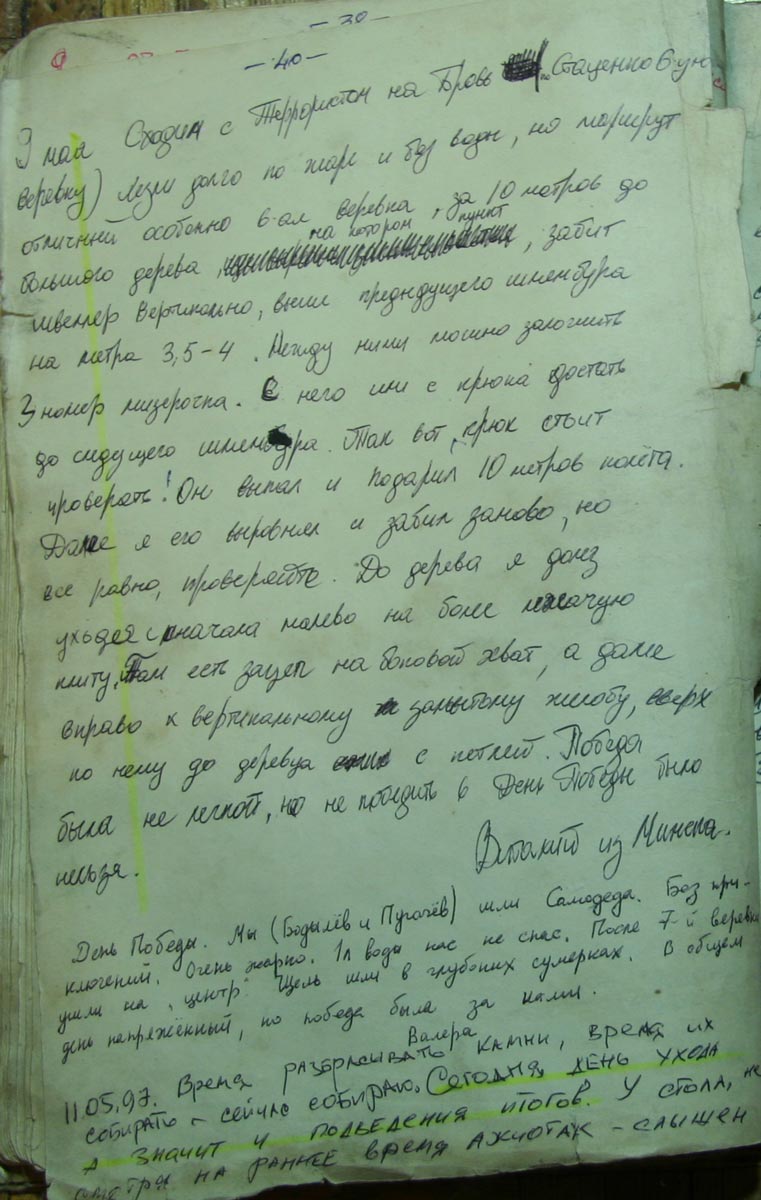 - 30 -
- 40 -
9 мая Сходил с Террористом на Бровь по Стаценко 6-ую
веревку) Лезли долго по жаре и без воды, но маршрут
отличный особенно 6-ая веревка, за 10 метров до
большого дерева, на котором пункт, забит
швеллер вертикально, выше предыдущего шлямбура
на метра 3,5-4. Между ними можно заложить
3 номер мизерочка. С него или с крюка достать
до следущего шлямбура. Так вот, крюк стоит
проверять! Он выпал и подарил 10 метров полёта.
Далее я его выровнял и забил заново, но
все равно, проверяйте. До дерева я долез
уходя сначала налево на более лежачую
плиту. Там есть зацеп на боковой хват, а далее
вправо к вертикальному замытому желобу, вверх
по нему до деревца с петлей. Победа
была не легкой, но не победить в День Победы было
нельзя.
Виталий из Минска.
День Победы. Мы (Бодылёв и Пугачёв) шли Самодеда. Без при-
ключений. Очень жарко. 1л воды нас не спас. После 7-й веревки
ушли на "центр". Щель шли в глубоких сумерках. В общем
день напряжённый, но победа была за нами.
Валера
11.05.97. Время разбрасывать камни, время их
собирать - сейчас собираю. Сегодня день ухода
а значит и подведения итогов. У стола, не
смотря на раннее время ажиотаж - слышен